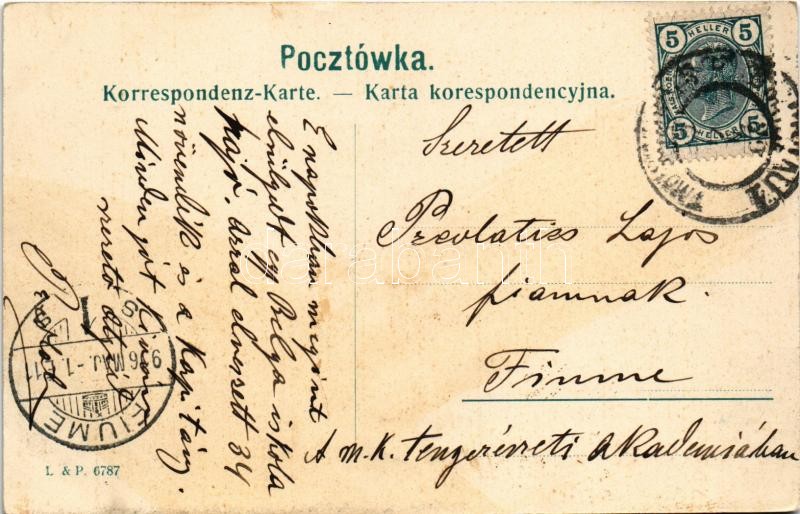 Pocztówka.
Korrespondenz-Karte. — Karta korespondencyjna.
5 HELLER 5
5 HELLER 5
Szeretett
Prevlatics Lajos
fiamnak.
Fiume
A m. K. tengerészeti akadémiában
E napokban megint
elsülyedt egy Belga iskola
hajó, azzal elveszett 34
növendék és a Kapitány.
Minden jót Kíván
szerető
FIUME
916 MÁJ. -1.
L. & P. 6787
darabanth